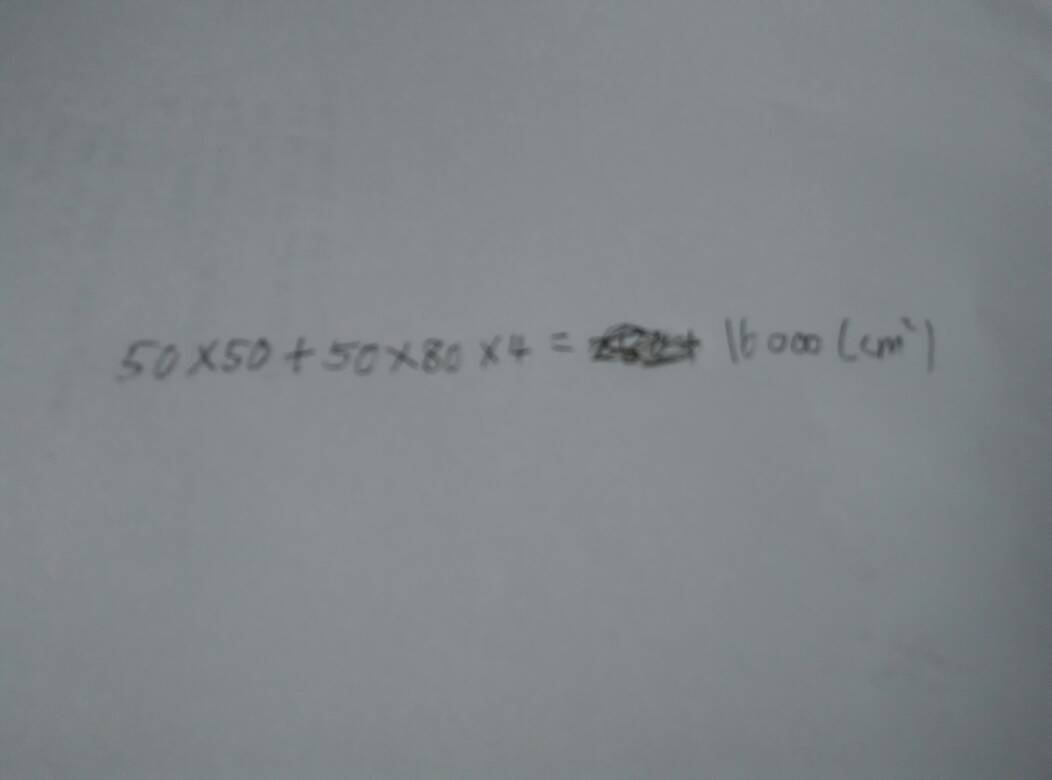 50×50+50×80×4= 16000(cm²)